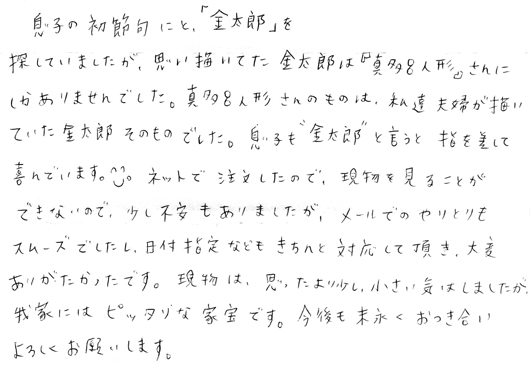 息子の初節句にと、「金太郎」を
探していましたが、思い描いてた金太郎は『真多呂人形』さんに
しかありませんでした。真多呂人形さんのものは、私達夫婦が描い
ていた金太郎そのものでした。息子も"金太郎"と言うと指を差して
喜んでいます。ネットで注文したので、現物を見ることが
できないので、少し不安もありましたが、メールでのやりとりも
スムーズでしたし、日付指定などもきちんと対応して頂き、大変
ありがたかったです。現物は、思ったより少し、小さい気はしましたが、
我家にはピッタリな家宝です。今後も末永くおつき合い
よろしくお願いします。